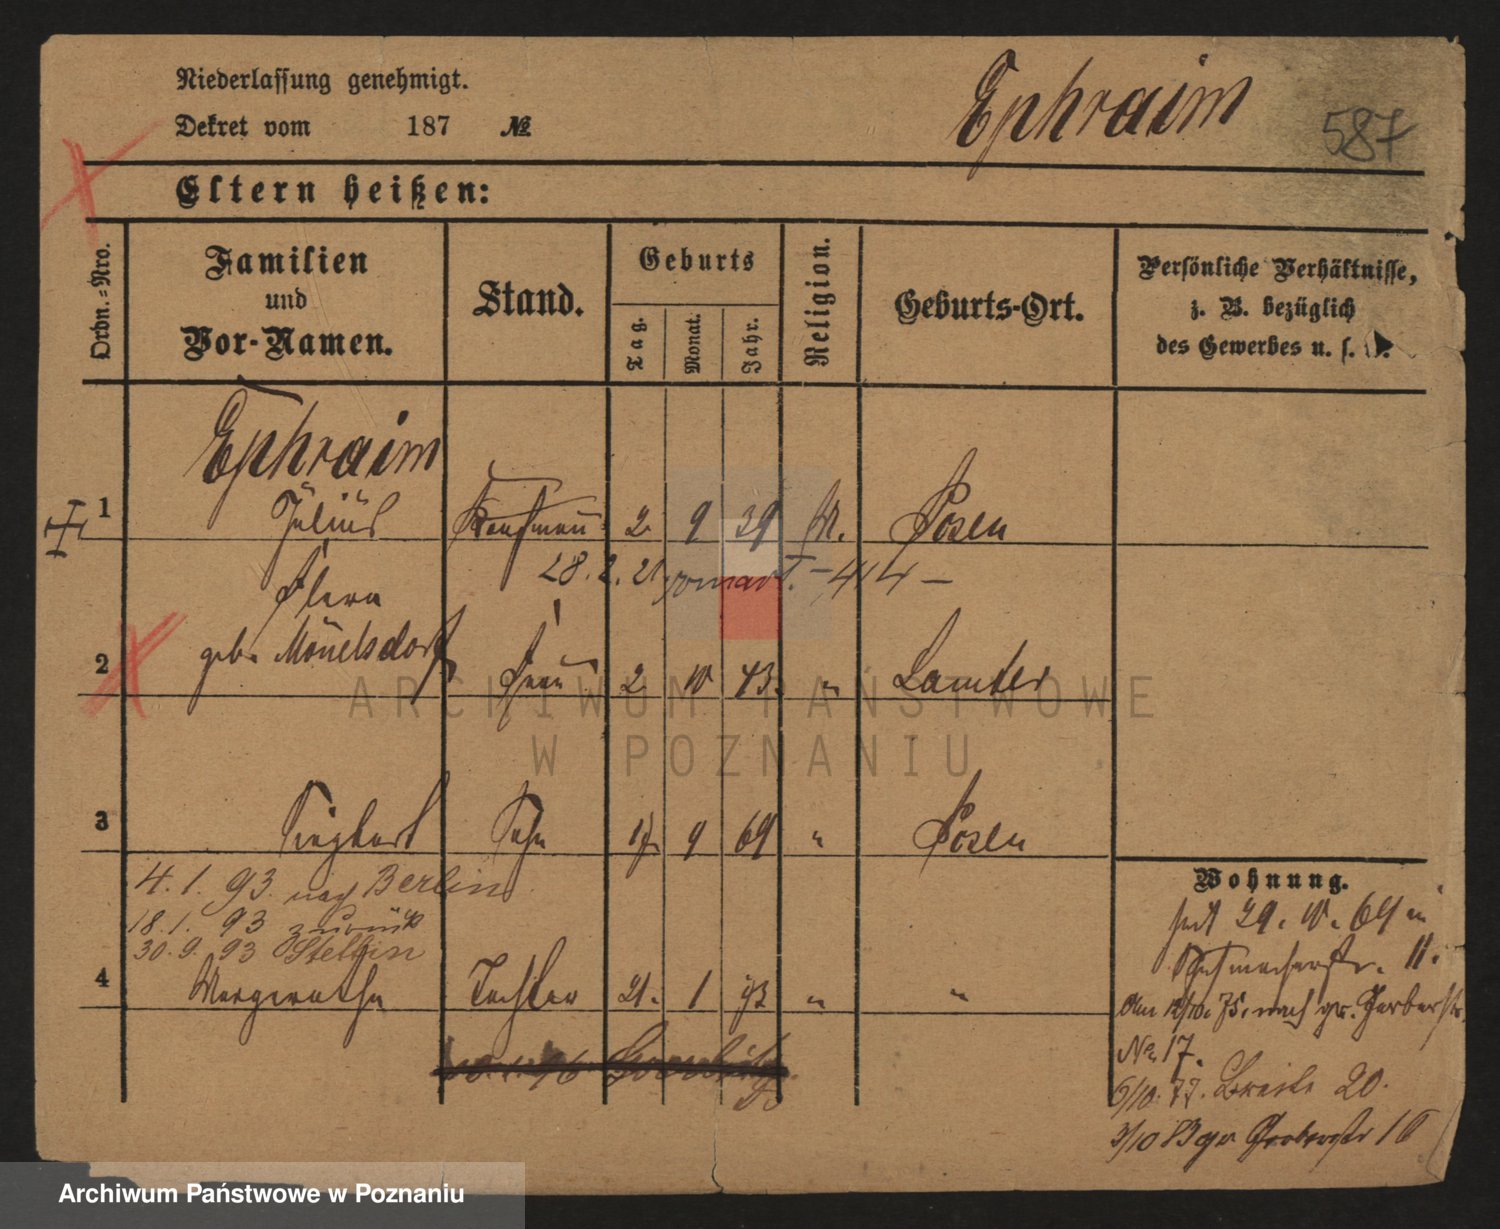 Niederlassung genehmigt.
Dekret vom 187 №
Ephraim
587
Eltern heißen:
Ordn.-Nro.
Familien
und
Vor-Namen.
Stand.
Geburts
Tag.
Monat.
Jahr.
Religion.
Geburts-Ort.
Persönliche Verhältnisse,
z. B. bezüglich
des Gewerbes u. s.
Ephraim
1 Julius Kaufmann 2 9 39 M. Posen
28. 2.
Flora
2 geb. Frau 2 10 43. " Samter
3 Siegbert Sohn 9 69 " Posen
4. 1. 93. nach Berlin
18. 1. 93 zurück
30. 9. 93 Stettin
4 Margarethe Tochter 21. 1 73 " "
Wohnung.
seit 29. 10. 69 in
Schuhmacherstr. 11.
Am 12/10. 75. nach gr. Gerberstr.
No 17.
6/10. 77. Breite 20.
3/10 83 gr Gerberstr 16
ARCHIWUM PAŃSTWOWE
W POZNANIU
Archiwum Państwowe w Poznaniu